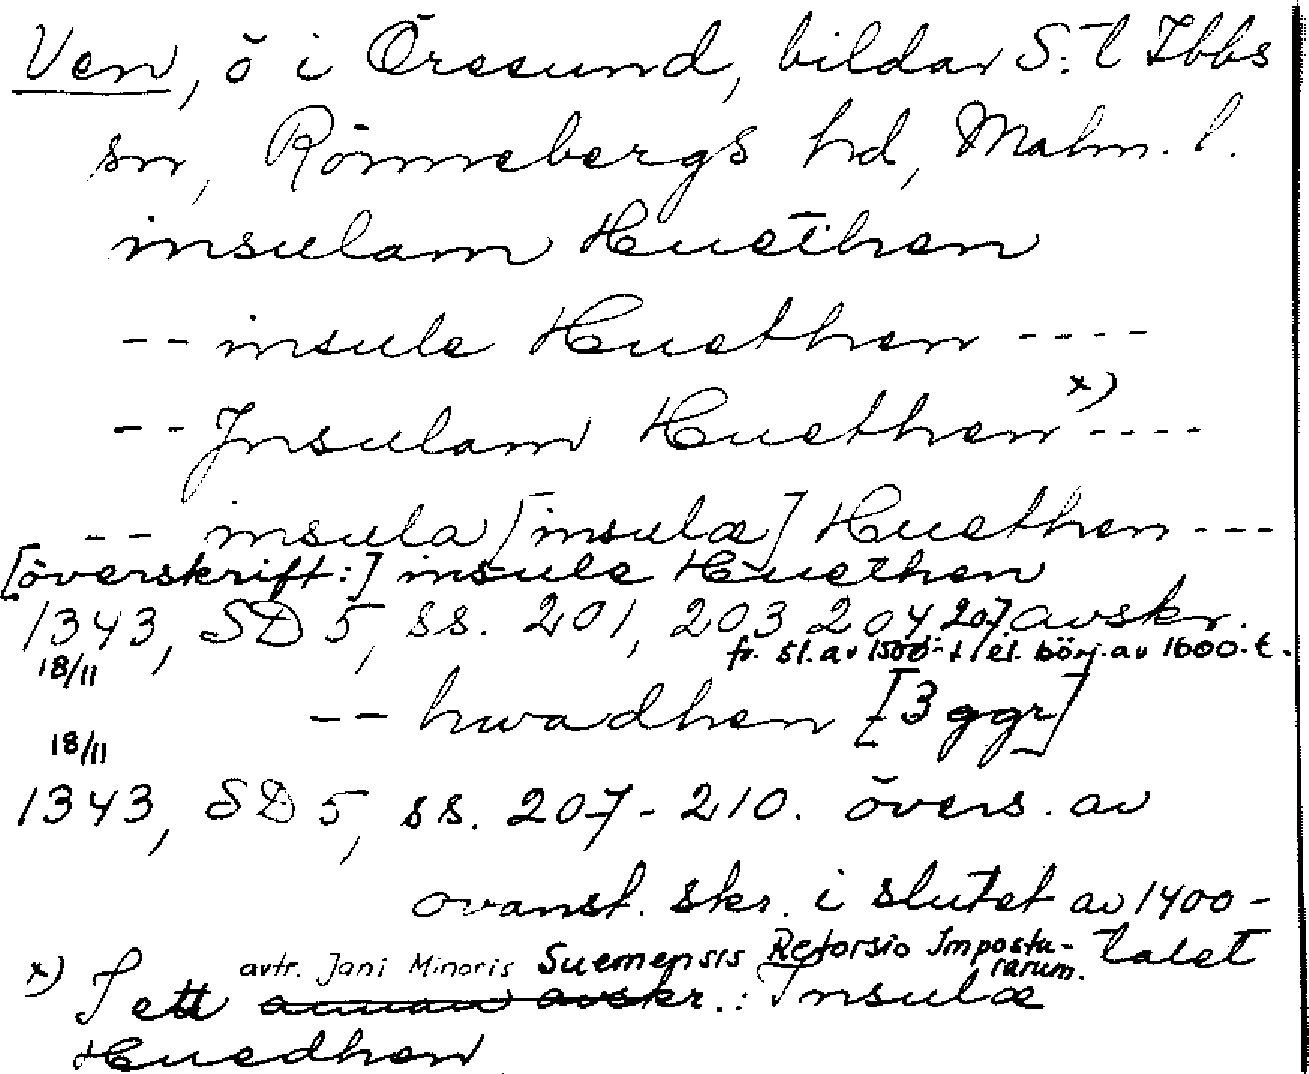 Ven, ö i Öresund, bildar S:t Ibbs
sn, Rönnebergs hd, Malm. l.
insulam Huethen
-- insule Huethen ----
-- Jnsulam Huethen x) ----
-- insula [insulæ] Huethen ---
[överskrift:] insule Huethen
1343, SD 5, ss. 201, 203 204 207 avskr.
18/11 fr. sl. av 1500-t el. börj. av 1600-t.
-- hwadhen [3 ggr]
18/11
1343, SD 5, ss. 207-210. övers. av
ovanst. skr. i slutet av 1400-
talet
avtr. Jani Minoris Suemensis Retorsio Impostu-
rarum.
x) I ett annan avskr.: Insulæ
Huedhen